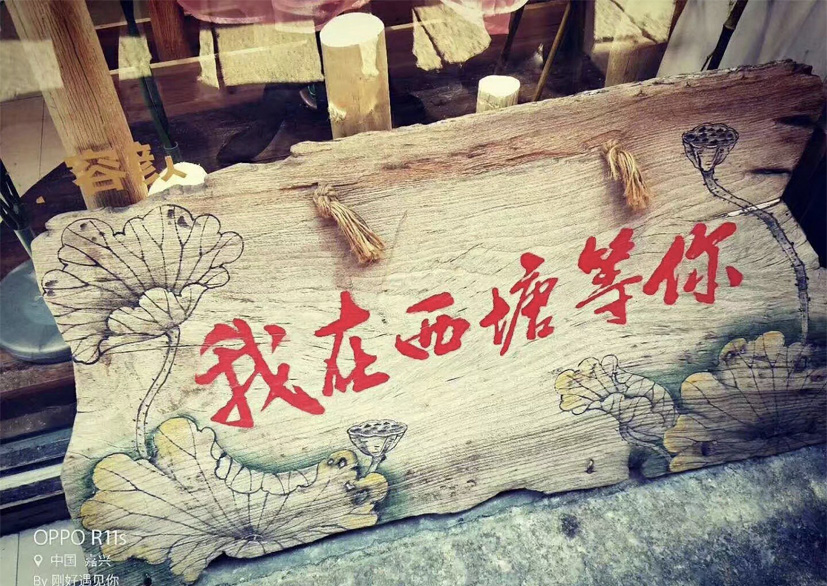 我在西塘等你
OPPO R11s
中国 嘉兴
By 刚好遇见你